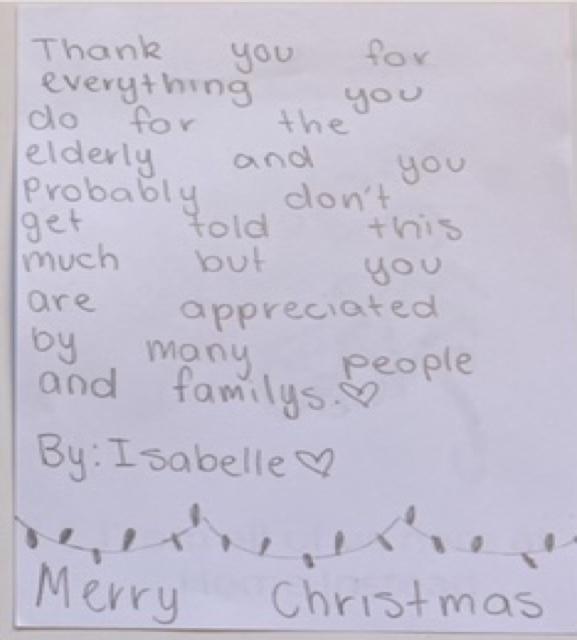 Thank you for
everything you
do for the
elderly and you
Probably don't
get told this
much but you
are appreciated
by many people
and familys.♡
By: Isabelle♡
Merry Christmas